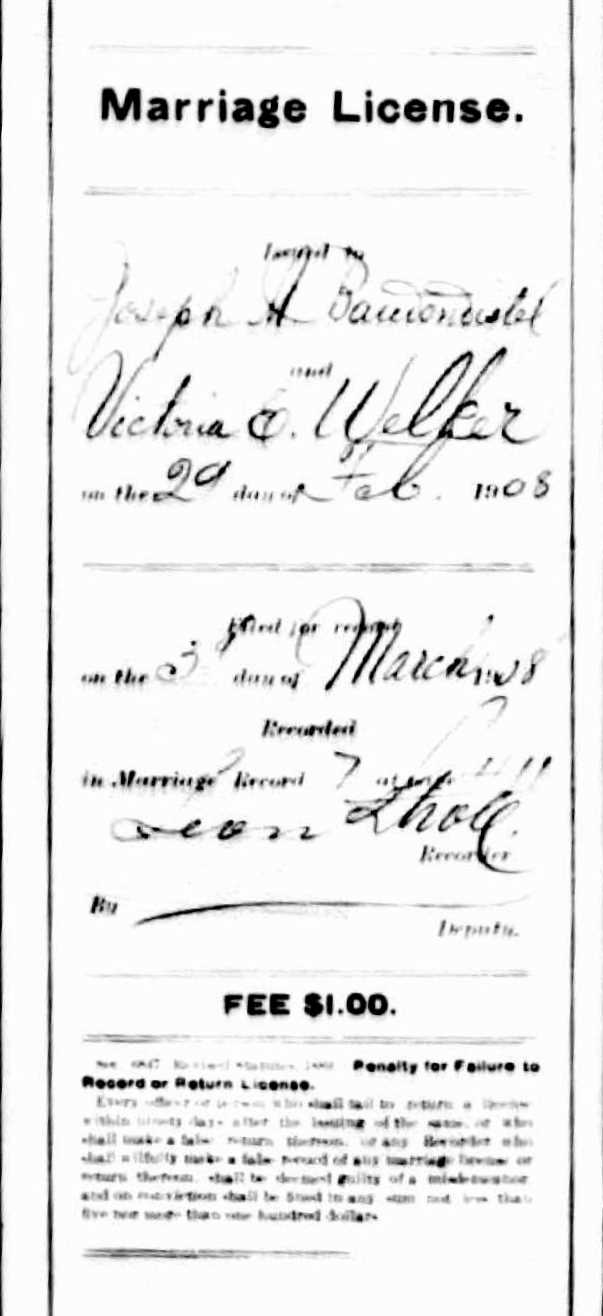 Marriage License.
Issued to
Joseph A Bauerndistel
and
Victoria E. Welker
on the 29 day of Feb. 1908
Filed for record
on the 3 day of March 1908
Recorded
in Marriage Record 7 at page
Leon
Recorder
By
Deputy.
FEE $1.00.
Revised Statutes, Penalty for Failure to
Record or Return License.
Every officer or person who shall fail to return a license
within ninety days after the issuing of the same, or who
shall make a false return thereon, or any Recorder who
shall wilfully make a false record of any marriage license or
return thereon, shall be deemed guilty of a misdemeanor
and on conviction shall be fined in any sum not less than
five nor more than one hundred dollars